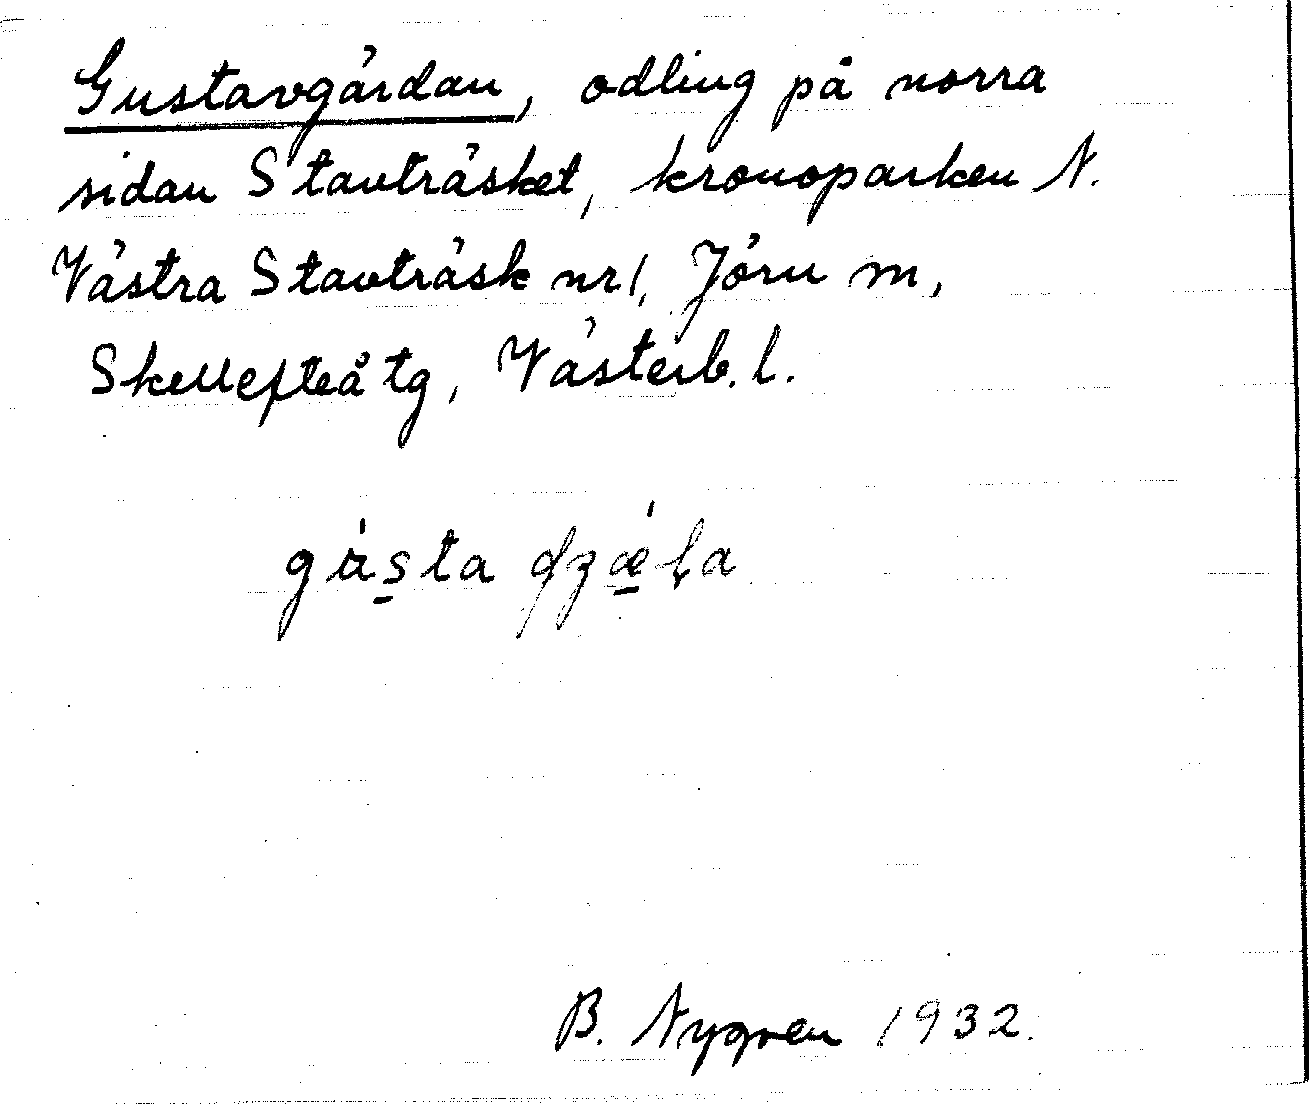 Gustavgärdan, odling på norra
sidan Stavträsket, kronoparken N.
Västra Stavträsk nr 1, Jörn m,
Skellefteå tg, Västerb. l.
B. Nygren 1932.